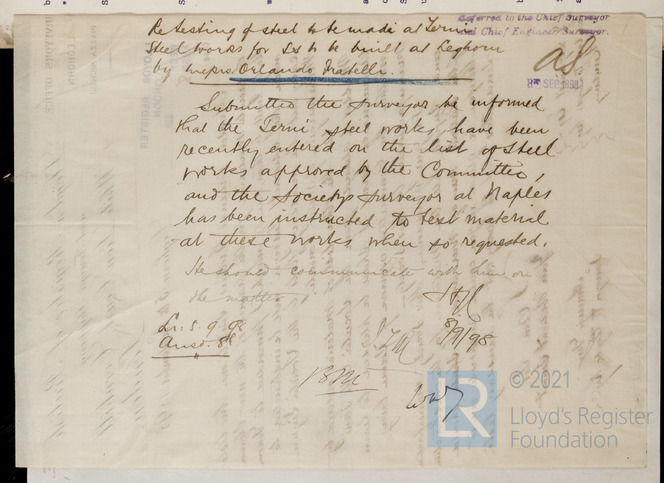 Re testing of steel to be made at Terni
Steel Works for SS to be built at Leghorn
by Messrs Orlando Fratelli.
Referred to the Chief Surveyor
and Chief Engineer Surveyor.
8th SEP. 1898
Submitted the Surveyor be informed
that the Terni steel works have been
recently entered on the list of Steel
Works approved by the Committee,
and the Society's Surveyor at Naples
has been instructed to test material
at these works when so requested.
He should communicate with him on
the matter
8/9/98
Lr. 5.9.98
Ansd. 8th
© 2021
LR
Lloyd's Register
Foundation